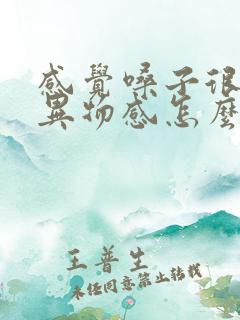 感覺嗓子很
異物感怎麼
王普生
未经同意禁止转载